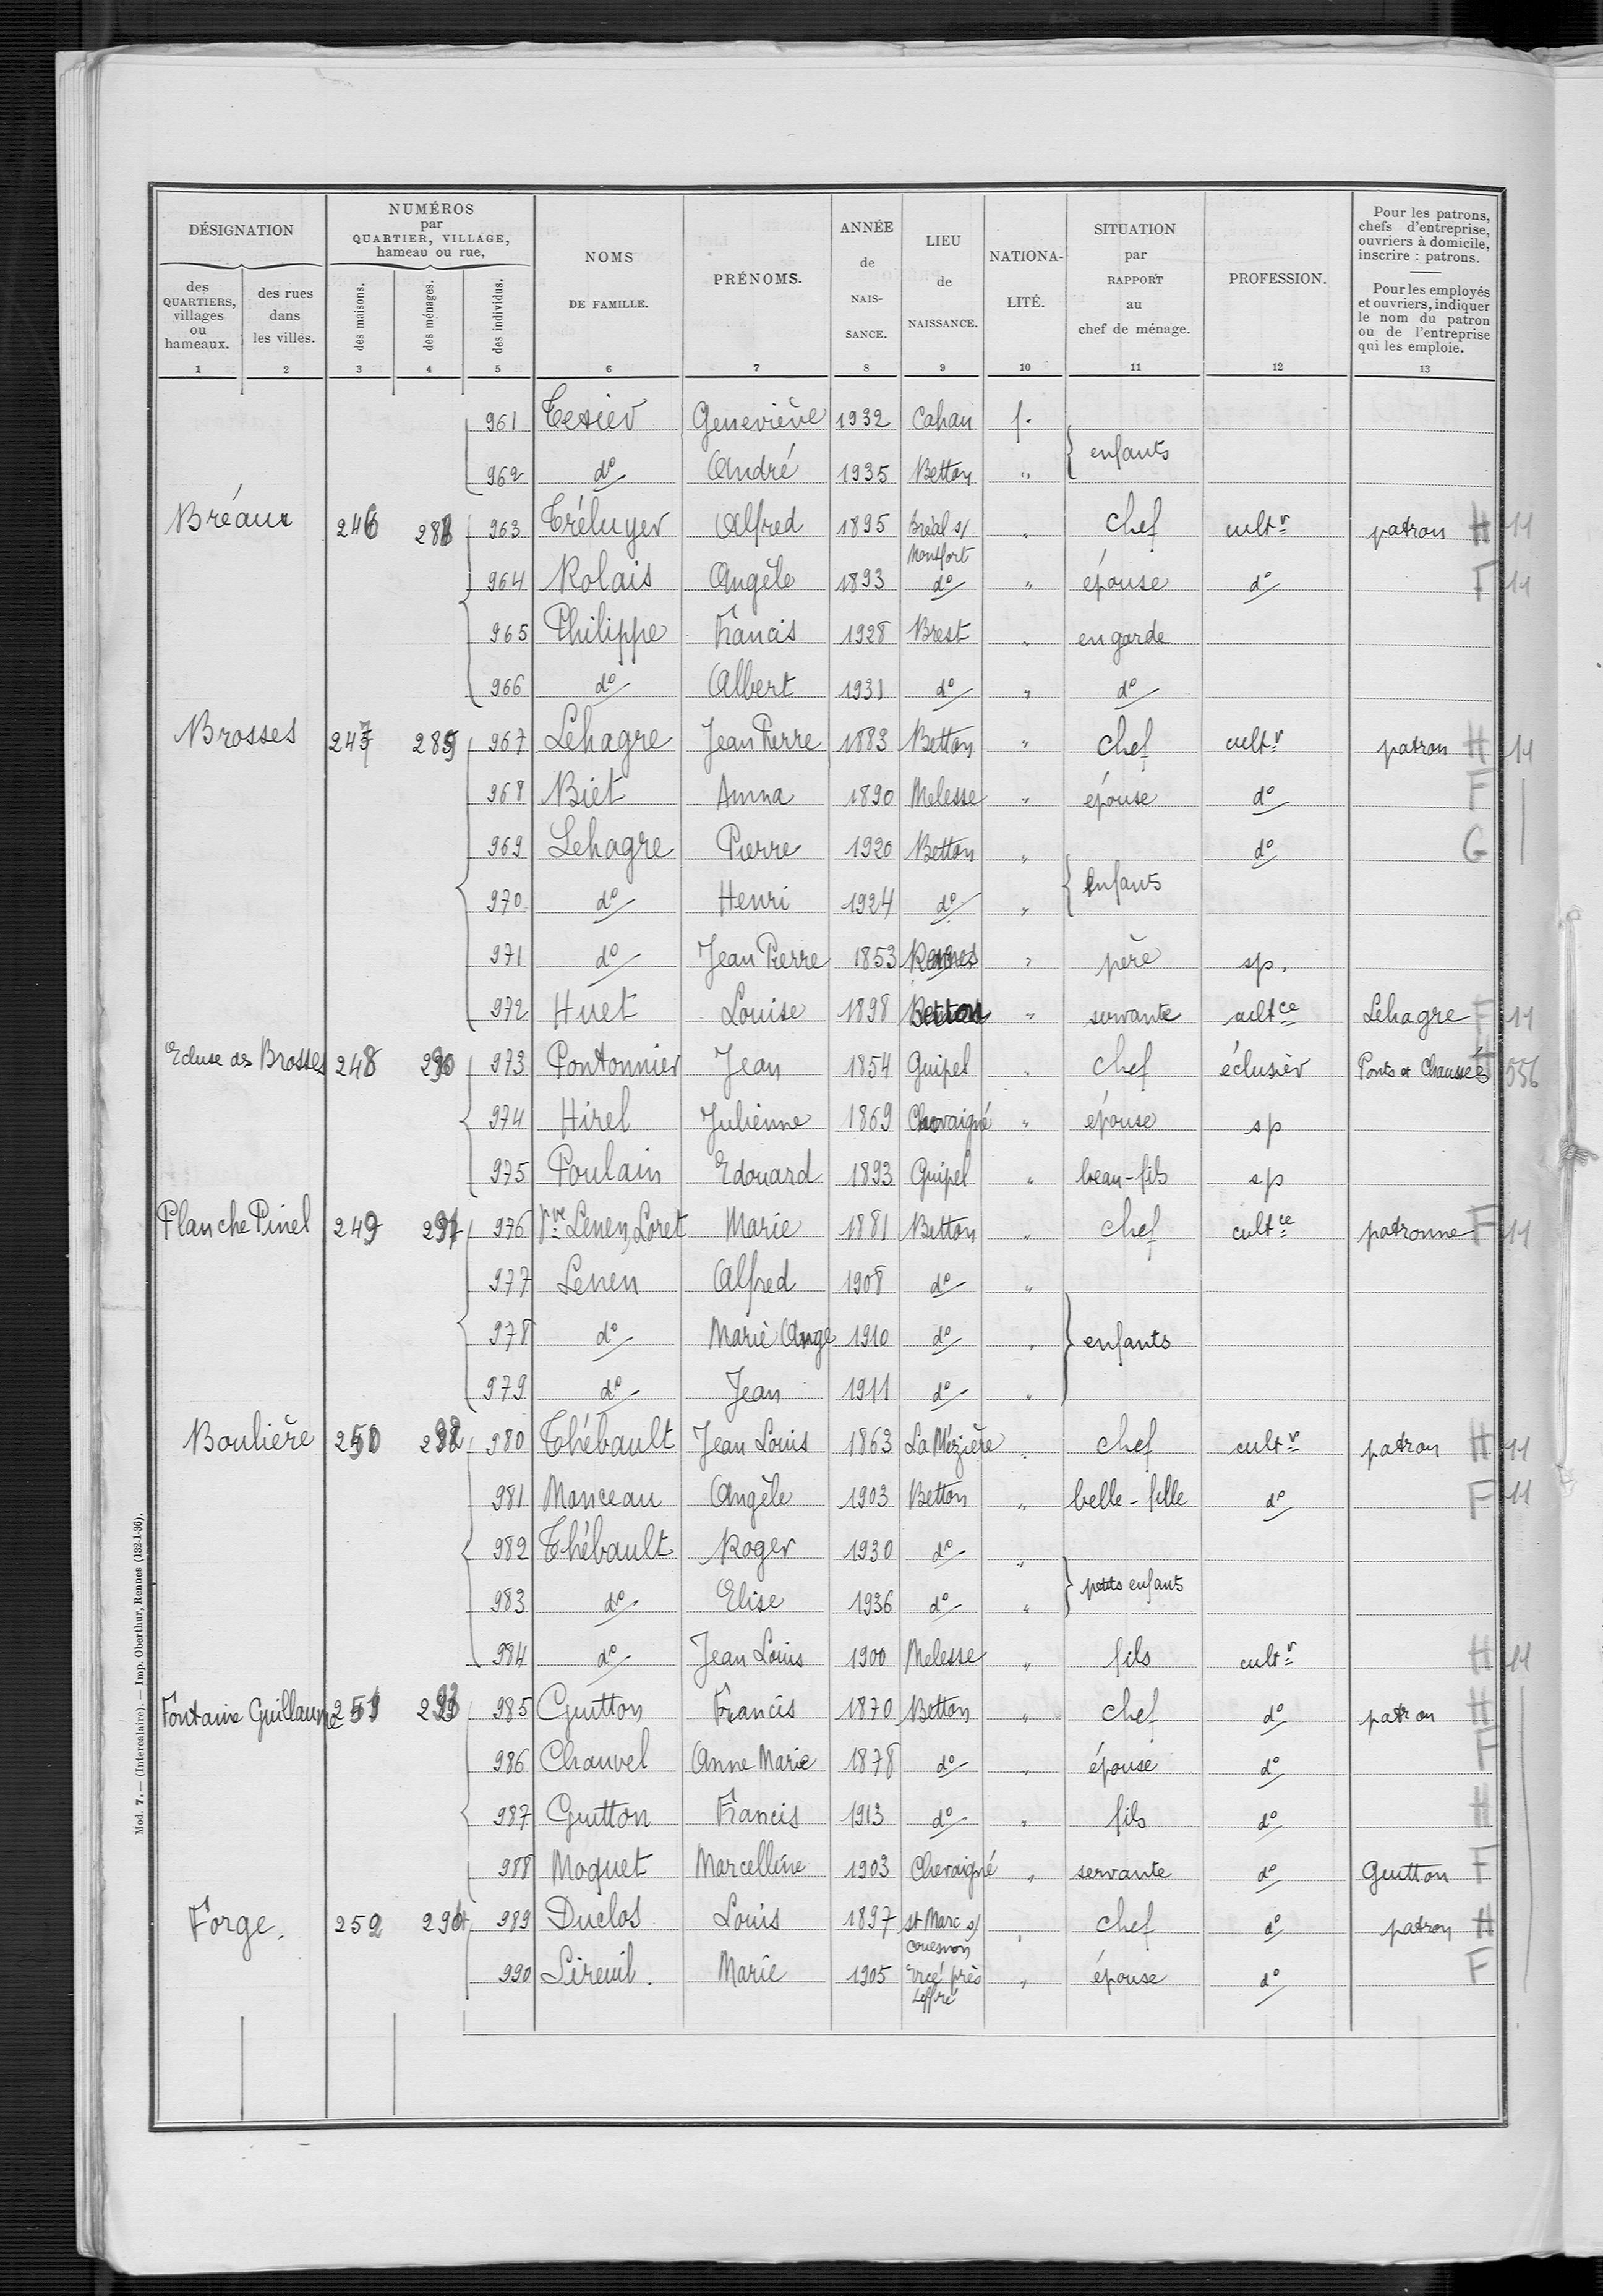 DÉSIGNATION
des QUARTIERS, villages ou hameaux.
des rues dans les villes.
NUMÉROS par QUARTIER, VILLAGE, hameau ou rue,
des maisons.
des ménages.
des individus.
NOMS DE FAMILLE.
PRÉNOMS.
ANNÉE de NAIS-SANCE.
LIEU de NAISSANCE.
NATIONA-LITÉ.
SITUATION par RAPPORT au chef de ménage.
PROFESSION.
Pour les patrons, chefs d'entreprise, ouvriers à domicile, inscrire : patrons.
Pour les employés et ouvriers, indiquer le nom du patron ou de l'entreprise qui les emploie.
1 2 3 4 5 6 7 8 9 10 11 12 13
961 Geneviève 1932 Cahan f.
enfants
962 do André 1935 Betton "
Bréaux 246 288 963 Tréluyer Alfred 1895 Bréal s/ Montfort " chef cultr patron H 11
964 Rolais Angèle 1893 do " épouse do F 11
965 Philippe Francis 1928 Brest " en garde
966 do Albert 1931 do " do
Brosses 247 289 967 Lehagre Jean Pierre 1883 Betton " chef cultr patron H 11
968 Biet Anna 1890 Melesse " épouse do F
969 Lehagre Pierre 1920 Betton " do G
enfants
970 do Henri 1924 do "
971 do Jean Pierre 1853 Rennes " père sp.
972 Huet Louise 1898 Betton " servante cultce Lehagre F 11
Ecluse des Brosses 248 290 973 Pontonnier Jean 1854 Guipel " chef éclusier Ponts et Chaussées H 556
974 Hirel Julienne 1869 Chevaigné " épouse sp
975 Poulain Edouard 1893 Guipel " beau-fils sp
Planche Pinel 249 291 976 Vve Lenen, Loret Marie 1881 Betton " chef cultce patronne F 11
977 Lenen Alfred 1908 do "
978 do Marie Ange 1910 do " enfants
979 do Jean 1911 do "
Boulière 250 292 980 Thébault Jean Louis 1863 La Mézière " chef cultr patron H 11
981 Monceau Angèle 1903 Betton " belle-fille do F 11
982 Thébault Roger 1930 do "
petits enfants
983 do Elise 1936 do "
984 do Jean Louis 1900 Melesse " fils cultr H 11
Fontaine Guillaume 251 293 985 Guitton Francis 1870 Betton " chef do patron H
986 Chauvel Anne Marie 1878 do " épouse do F
987 Guitton Francis 1913 do " fils do H
988 Moquet Marcelline 1903 Chevaigné " servante do Guitton F
Forge. 252 294 989 Duclos Louis 1897 St Marc s/ Couesnon " chef do patron H
990 Marie 1905 Ercé près Liffré " épouse do F
Mod. 7. — (Intercalaire). — Imp. Oberthur, Rennes (132-1-36).